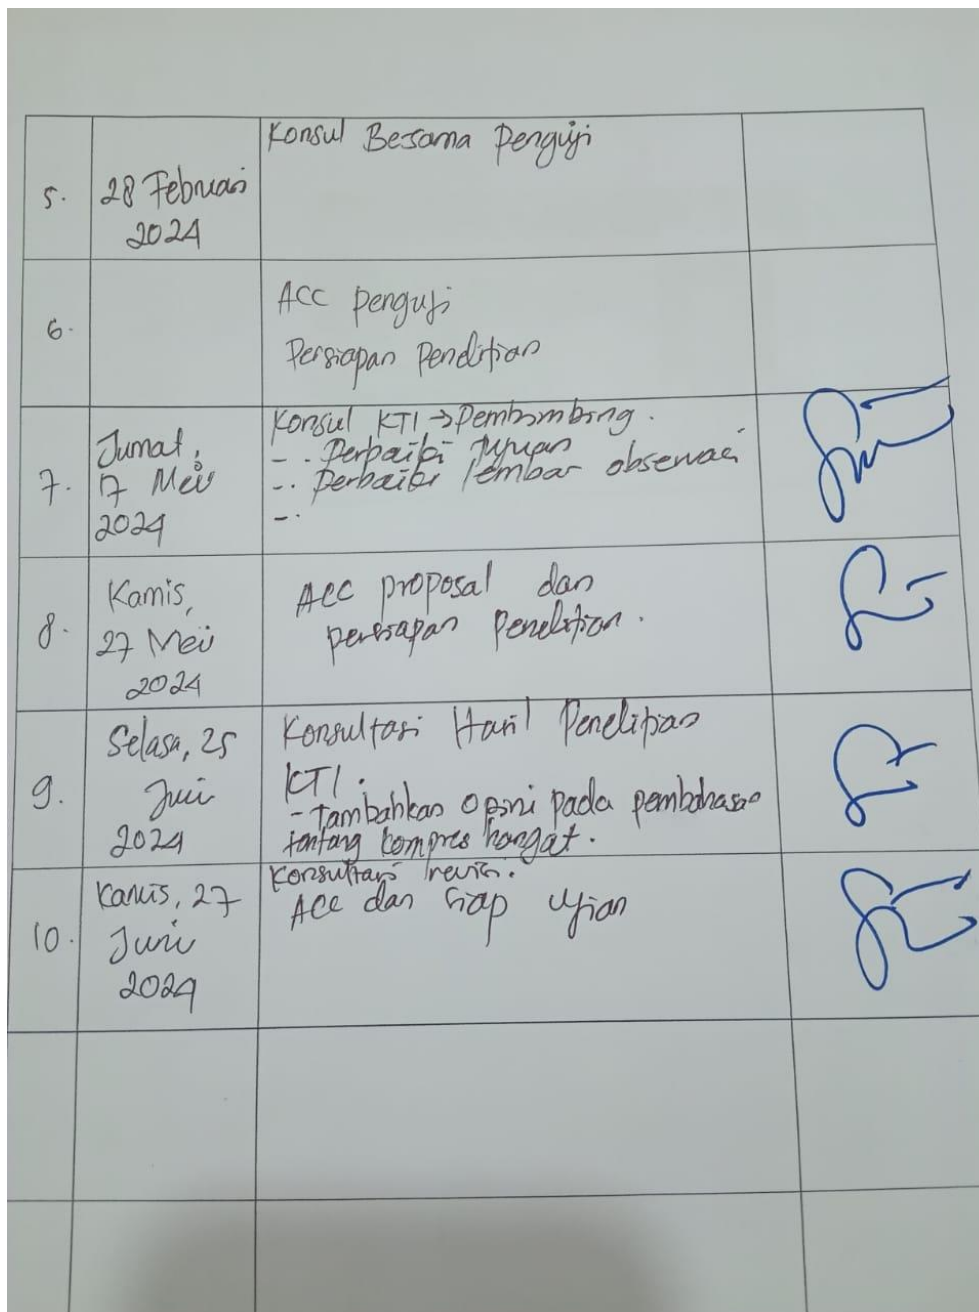 5.
28 Februari
2024
Konsul Besama Penguji
6.
ACC penguji
Persiapan Penelitian
7.
Jumat,
17 Mei
2024
Konsul KTI → Pembimbing.
-. Perbaiki Tujuan
-. Perbaiki lembar observasi
-.
8.
Kamis,
27 Mei
2024
ACC proposal dan
persiapan Penelitian.
9.
Selasa, 25
Juni
2024
Konsultasi Hasil Penelitian
KTI.
- Tambahkan Opini pada pembahasan
tentang kompres hangat.
10.
Kamis, 27
Juni
2024
Konsultasi revisi.
ACC dan siap ujian